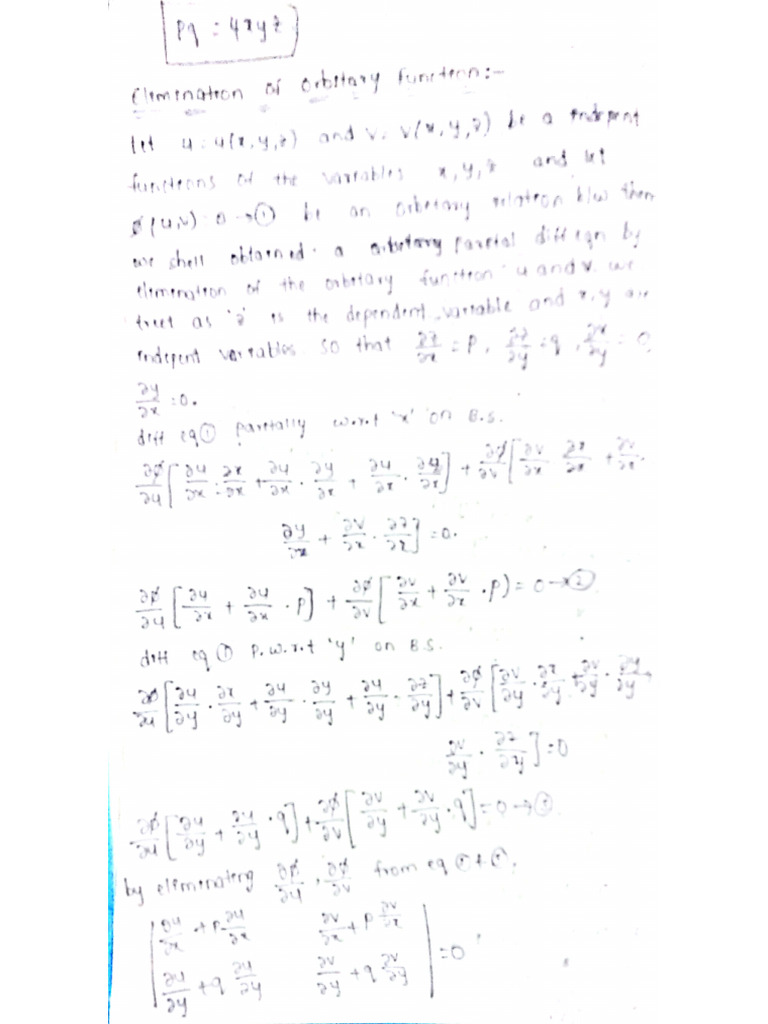 pq = 4xyz
Elimination of orbitary function:-
let u = u(x,y,z) and v = v(x,y,z) be a indepent
functions of the variables x, y, z and let
ø(u,v) = 0 → ① be an orbetary relation b/w then
we shell obtained a arbetary paretal diff eqn by
elemenation of the orbetary function u and v. we
treet as 'z' is the dependent variable and x, y are
indepent variables so that ∂z/∂x = p, ∂z/∂y = q, ∂x/∂y = 0
∂y/∂x = 0.
diff eq ① paretally w.r.t 'x' on B.S.
∂ø/∂u [∂u/∂x · ∂x/∂x + ∂u/∂x · ∂y/∂x + ∂u/∂x · ] + ∂ø/∂v [∂v/∂x ∂x/∂x + ∂v/∂x ·
∂y/∂x + ∂v/∂x · ∂z/∂x] = 0.
∂ø/∂u [∂u/∂x + ∂u/∂x · p] + ∂ø/∂v [∂v/∂x + ∂v/∂x · p) = 0 → ②
diff eq ① p.w.r.t 'y' on B.S.
∂ø/∂u [∂u/∂y · ∂x/∂y + ∂u/∂y · ∂y/∂y + ∂u/∂y · ∂z/∂y] + ∂ø/∂v [∂v/∂y · ∂x/∂y + ∂v/∂y · ∂y/∂y +
∂v/∂y · ∂z/∂y] = 0
∂ø/∂u [∂u/∂y + ∂u/∂y · q] + ∂ø/∂v [∂v/∂y + ∂v/∂y · q] = 0 → ③
by elemenateng ∂ø/∂u, ∂ø/∂v from eq
| ∂u/∂x + p ∂u/∂x ∂v/∂x + p ∂v/∂x |
| ∂u/∂y + q ∂u/∂y ∂v/∂y + q ∂v/∂y | = 0